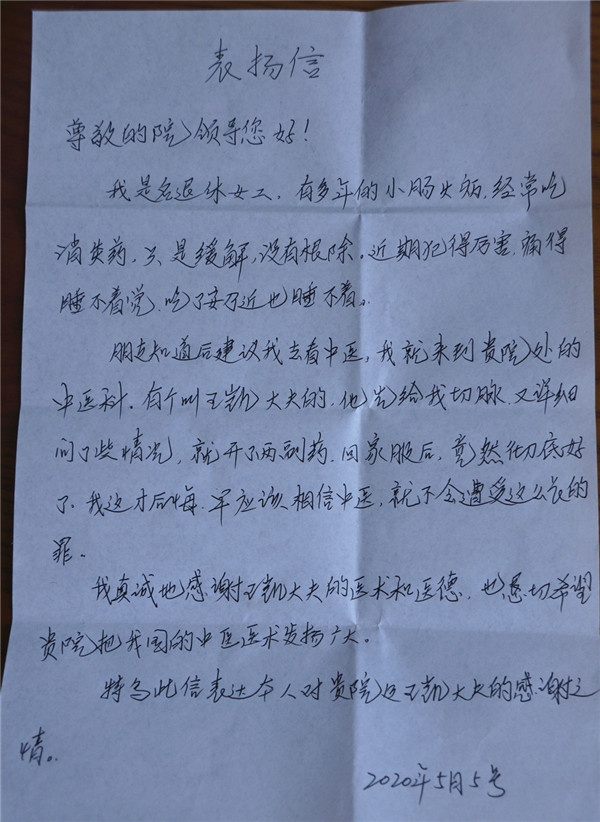 表扬信
尊敬的院领导您好!
我是名退休女工,有多年的小肠火病,经常吃
消炎药,只是缓解,没有根除。近期犯得厉害,痛得
睡不着觉,吃了安乃近也睡不着。
朋友知道后建议我去看中医,我就来到贵院处的
中医科。有个叫王凯大夫的,他先给我切脉,又详细
问了些情况,就开了两副药,回家服后,竟然彻底好
了,我这才后悔,早应该相信中医,就不会遭受这么长的
罪。
我真诚地感谢王凯大夫的医术和医德,也恳切希望
贵院把我国的中医医术发扬广大。
特写此信表达本人对贵院及王凯大夫的感谢之
情。
2020年5月5号